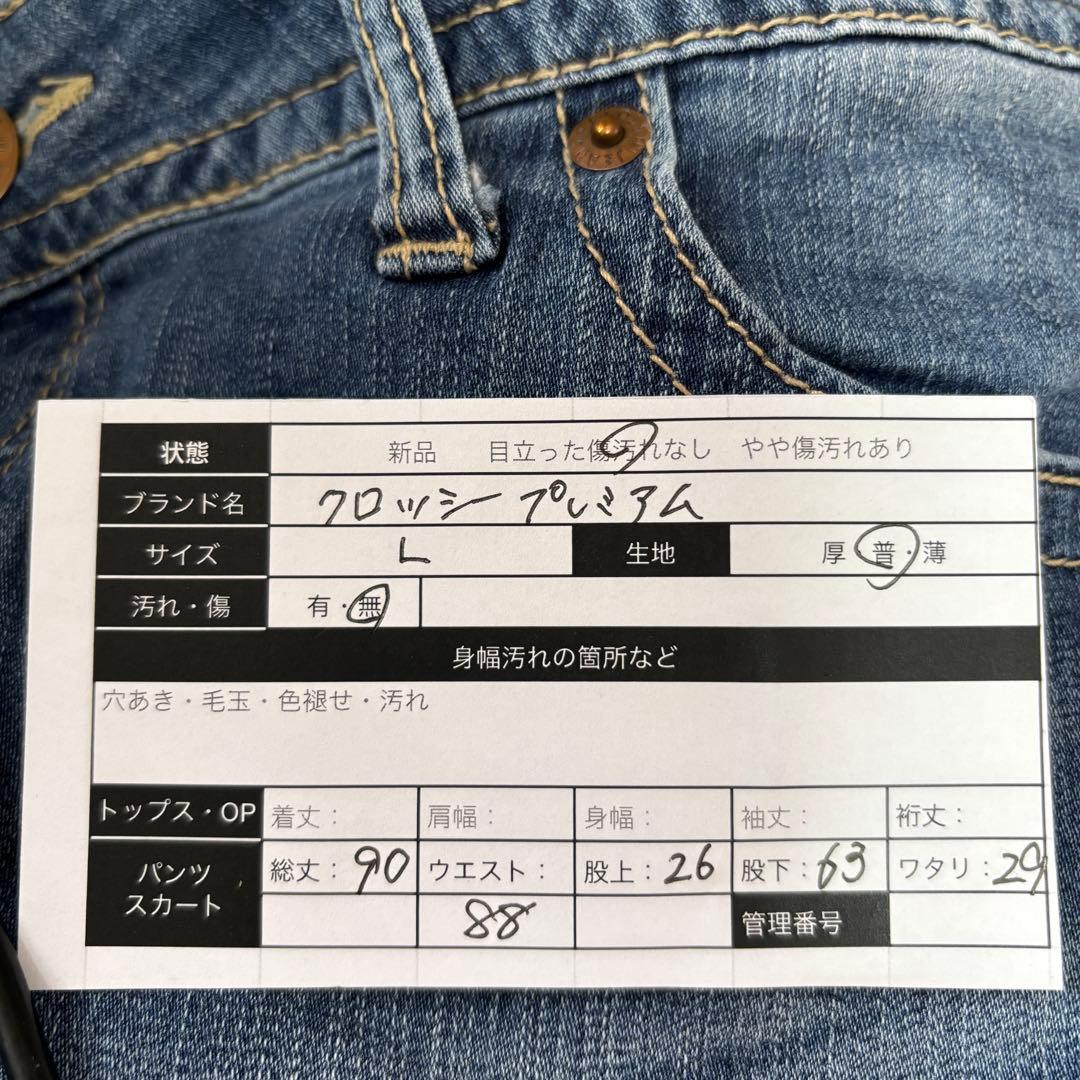 状態 新品 目立った傷汚れなし やや傷汚れあり
ブランド名 クロッシープレミアム
サイズ L 生地 厚・普・薄
汚れ・傷 有・無
身幅汚れの箇所など
穴あき・毛玉・色褪せ・汚れ
トップス・OP 着丈： 肩幅： 身幅： 袖丈： 裄丈：
パンツ 総丈：90 ウエスト： 股上：26 股下：63 ワタリ：29
スカート 88 管理番号